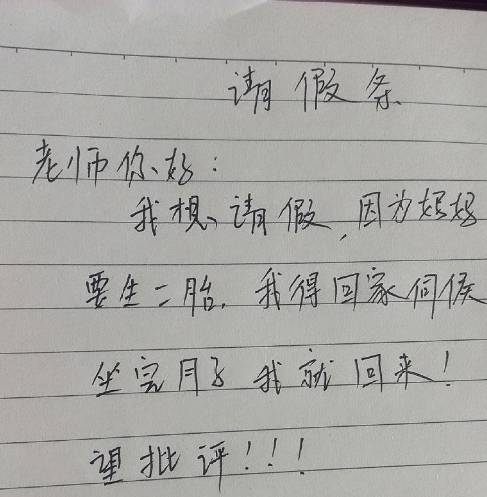 请假条
老师你好：
我想请假，因为妈妈
要生二胎，我得回家伺候
坐完月子我就回来！
望批评！！！